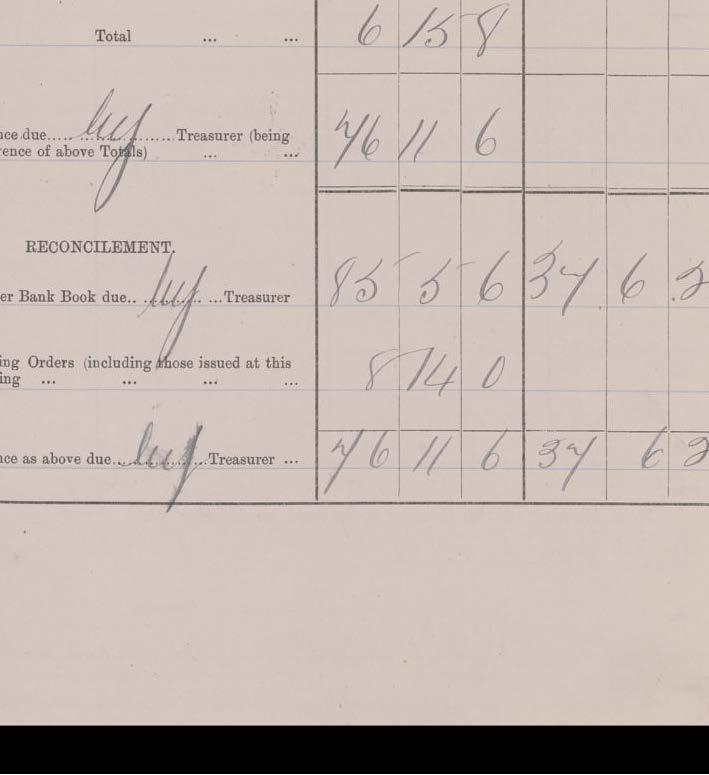 Total ... ... 6 15 8
nce due..... by ....... Treasurer (being
rence of above Totals) ... ... 76 11 6
RECONCILEMENT.
er Bank Book due.. by ...Treasurer 85 5 6 37 6 2
ing Orders (including those issued at this
ing ... ... ... ... 8 14 0
nce as above due.. by ..Treasurer ... 76 11 6 37 6 2